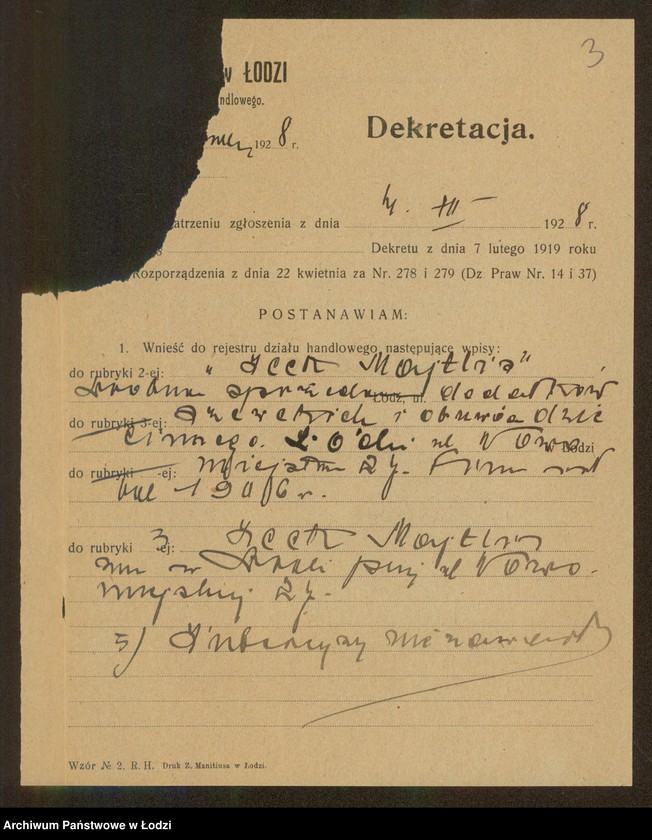 3
w ŁODZI
ndlowego.
1928 r.
Dekretacja.
atrzeniu zgłoszenia z dnia 4. XII 1928 r.
Dekretu z dnia 7 lutego 1919 roku
Rozporządzenia z dnia 22 kwietnia za Nr. 278 i 279 (Dz Praw Nr. 14 i 37)
POSTANAWIAM:
1. Wnieść do rejestru działu handlowego następujące wpisy:
do rubryki 2-ej: "Icek Majtlis"
drobna sprzedaż Łódź, ul. dodatków
do rubryki 3-ej: szewckich i obuwia dzie
cinnego. w Łodzi
do rubryki -ej: 27. Firma
1906 r.
do rubryki 3 ej: Icek Majtlis
w Łodzi przy ul Nowo-
miejskiej 27.
5) Intercyzy nie zawarł
Wzór № 2. R. H. Druk Z. Manitiusa w Łodzi.
Archiwum Państwowe w Łodzi